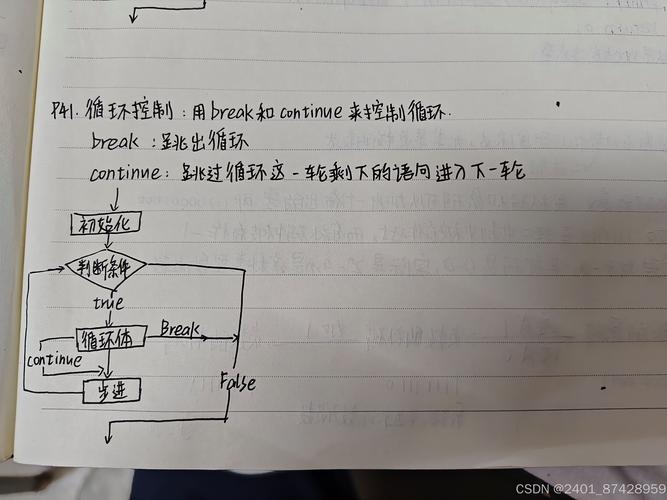 P41. 循环控制：用break和continue来控制循环.
break：跳出循环
continue：跳过循环这一轮剩下的语句进入下一轮
初始化
判断条件
true
循环体
Break
continue
步进
False
CSDN @2401_87428959